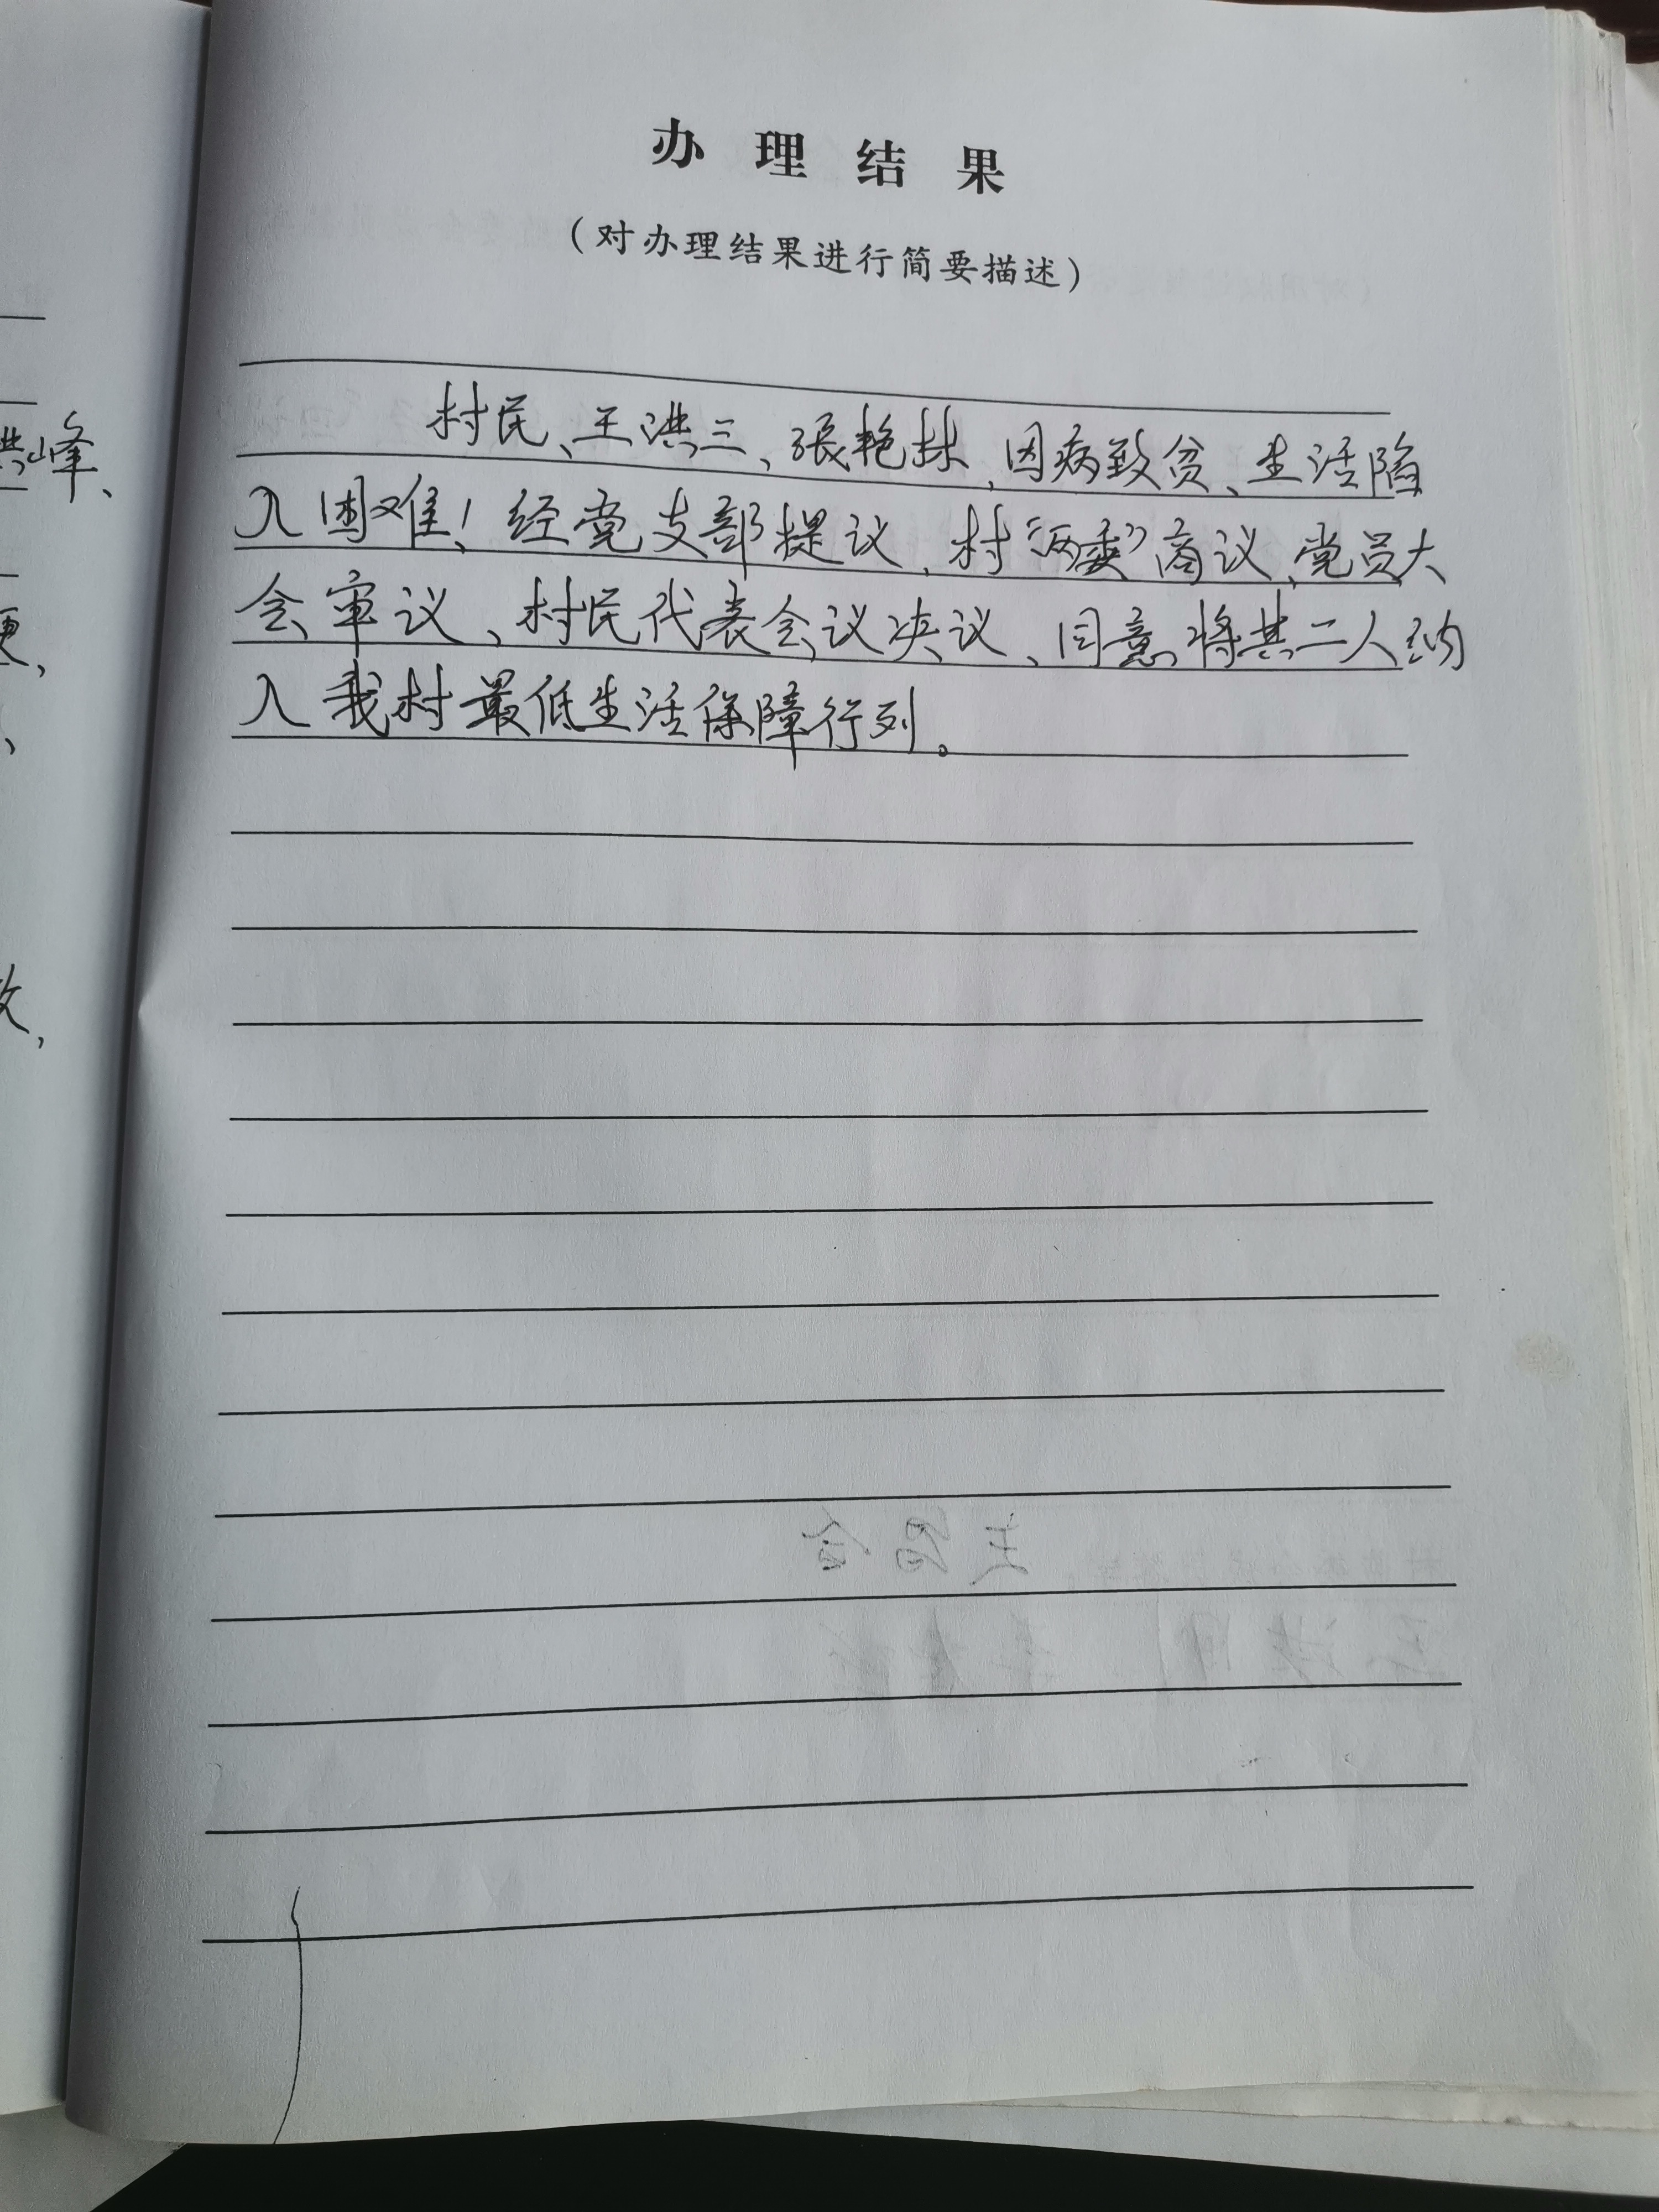 办理结果
（对办理结果进行简要描述）
村民、王洪三、张艳林、因病致贫、生活陷
入困难！经党支部提议、村“两委”商议、党员大
会审议、村民代表会议决议、同意将其二人纳
入我村最低生活保障行列。
峰、